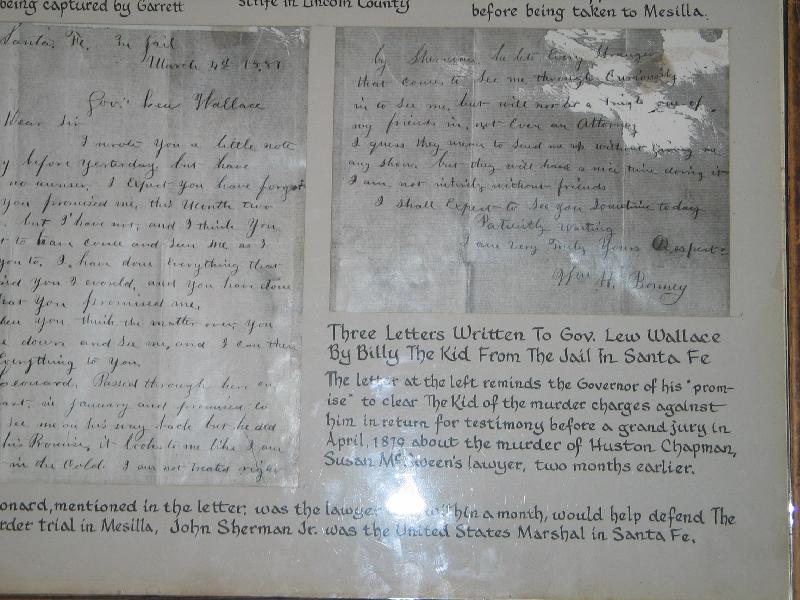 being captured by Garrett
strife in Lincoln County
before being taken to Mesilla.
Santa Fe. In jail
March 4th 1881
Gov. Lew Wallace
Dear Sir
I wrote you a little note
before yesterday but have
no answer. I Expect you have forgot
you promised me, this Month two
but I have not, and I think You
to have come and seen me as I
you to. I have done Everything that
you I would, and you have done
that You promised me.
you think the matter over, You
down and See me, and I can then
Everything to You.
Leonard, Passed through here on
in January and promised to
See me on his way back but he did
his Promise, it looks to me like I am
in the Cold. I am not treated right
by Sherman. he lets Every Stranger
that comes to See me through Curiousity
in to See me, but will not let a Single one of
my friends in, not Even an Attorney
I guess they mean to Send me up without giving me
any show. but they will have a nice time doing it
I am not intirely without friends
I shall Expect to See you Sometime today
Patiently Waiting
I am Very Truly Yours Respect.
Wm H. Bonney
Three Letters Written To Gov. Lew Wallace
By Billy The Kid From The Jail In Santa Fe
The letter at the left reminds the Governor of his "prom-
ise" to clear The Kid of the murder charges against
him in return for testimony before a grand jury in
April, 1879 about the murder of Huston Chapman,
Susan McSween's lawyer, two months earlier.
onard, mentioned in the letter, was the lawyer within a month, would help defend The
rder trial in Mesilla, John Sherman Jr. was the United States Marshal in Santa Fe.